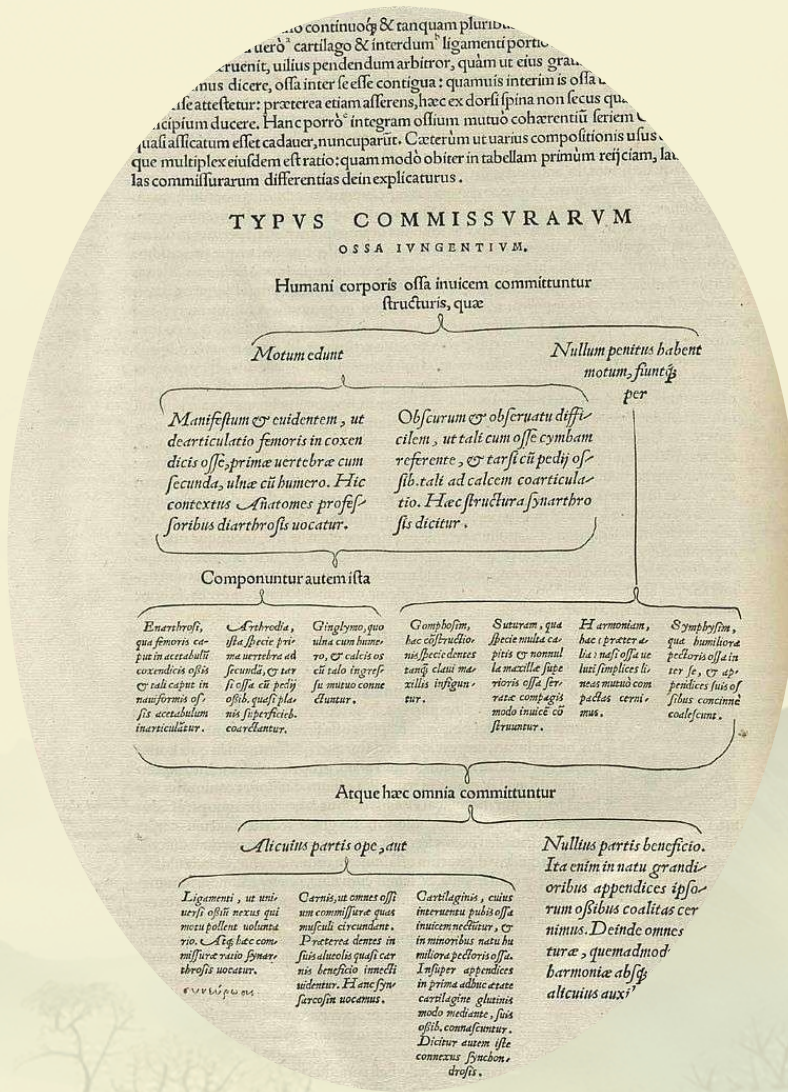 continuoq́ꝫ & tanquam
uerò ᵃ cartilago & interdum ᵇ ligamenti
uilius pendendum arbitror, quàm ut eius
dicere, oſſa inter ſe eſſe contigua: quamuis interim is oſſa
atteſtetur: præterea etiam aſſerens, hæc ex dorſi ſpina non ſecus
ducere. Hanc porrò ᶜ integram oſſium mutuò cohærentiũ ſeriem
quaſi aſſicatum eſſet cadauer, nuncuparũt. Cæterùm ut uarius compoſitionis uſus
que multiplex eiuſdem eſt ratio: quam modò obiter in tabellam primùm reijciam,
las commiſſurarum differentias dein explicaturus.
TYPVS COMMISSVRARVM
OSSA IVNGENTIVM.
Humani corporis oſſa inuicem committuntur
ſtructuris, quæ
Motum edunt
Nullum penitus habent
motum, fiuntq́ꝫ
per
Manifeſtum & euidentem, ut
dearticulatio femoris in coxen
dicis oſſe, primæ uertebræ cum
ſecunda, ulnæ cũ humero. Hic
contextus Anatomes profeſ-
ſoribus diarthroſis uocatur.
Obſcurum & obſeruatu diffi-
cilem, ut tali cum oſſe cymbam
referente, & tarſi cũ pedij oſ-
ſib. tali ad calcem coarticula-
tio. Hæc ſtructura ſynarthro
ſis dicitur.
Componuntur autem iſta
Enarthroſi,
qua femoris ca-
put in acetabulũ
coxendicis oßis
& tali caput in
nauiformis oſ-
ſis acetabulum
inarticulãtur.
Arthrodia,
iſta ſpecie pri-
ma uertebra ad
ſecundã, & tar
ſi oſſa cũ pedij
oßib. quaſi pla-
nis ſuperficieb.
coarctantur.
Ginglymo, quo
ulna cum hume-
ro, & calcis os
cũ talo ingreſ-
ſu mutuo conne
ctuntur.
Gomphoſim,
hac cõſtructio-
nis ſpecie dentes
tanq́ꝫ claui ma-
xillis infigun-
tur.
Suturam, qua
ſpecie multa ca-
pitis & nonnul
la maxillæ ſupe
rioris oſſa ſer-
ratæ compagis
modo inuicẽ cõ
ſtruuntur.
Harmoniam,
hac præter a-
lia naſi oſſa ue
luti ſimplices li-
neas mutuò com
pactas cerni-
mus.
Symphyſim,
qua humiliora
pectoris oſſa in
ter ſe, & ap-
pendices ſuis oſ
ſibus concinnè
coaleſcunt.
Atque hæc omnia committuntur
Alicuius partis ope, aut
Nullius partis beneficio.
Ita enim in natu grandi-
oribus appendices ipſo-
rum oßibus coalitas cer
nimus. Deinde omnes
turæ, quemadmod
harmoniæ abſq́ꝫ
alicuius
Ligamenti, ut uni-
uerſi oßiũ nexus qui
motu pollent uolunta
rio. Atq́ꝫ hæc com-
miſſuræ ratio ſynar-
throſis uocatur.
Carnis, ut omnes oſſi
um commiſſuræ quas
muſculi circundant.
Præterea dentes in
ſuis alueolis quaſi car
nis beneficio innecti
uidentur. Hanc ſyn-
ſarcoſin uocamus.
Cartilaginis, cuius
interuentu pubis oſſa
inuicem nectũtur, &
in minoribus natu hu
miliora pectoris oſſa.
Inſuper appendices
in prima adhuc ætate
cartilagine glutinis
modo mediante, ſuis
oßib. connaſcuntur.
Dicitur autem iſte
connexus ſynchon-
droſis.